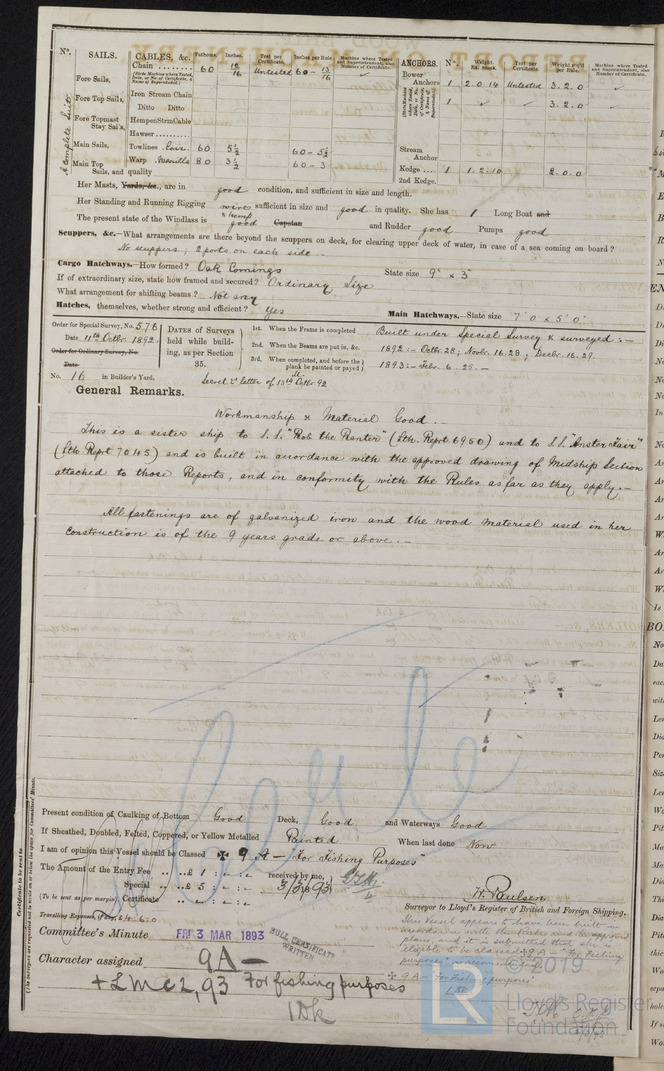 Nº. SAILS. CABLES, &c. Fathoms. Inches. Test per Certificate. Inches per Rule. Machine where Tested and Superintendent, also Number of Certificate. ANCHORS. Nº. Weight Ex. Stock. Test per Certificate. Weight req'd per Rule. Machine where Tested and Superintendent, also Number of Certificate.
A Complete Suit
Fore Sails, Chain ........ 60 Untested 60 - 13/16 Bower Anchors 1 2.0.14 Untested 3.2.0
Fore Top Sails, Iron Stream Chain 1 3.2.0
Ditto Ditto
Fore Topmast Stay Sails, Hempen Strm Cable
Hawser ........
Main Sails, Towlines Coir. 60 5½ 60 - 5½ Stream Anchor
Main Top Sails, and quality Warp Manilla 80 3½ 60 - 3 Kedge ... 1 1.2.10 2.0.0
2nd Kedge.
Her Masts, Yards, &c., are in good condition, and sufficient in size and length.
Her Standing and Running Rigging wire & hemp sufficient in size and good in quality. She has 1 Long Boat and
The present state of the Windlass is good Capstan and Rudder good Pumps good
Scuppers, &c.—What arrangements are there beyond the scuppers on deck, for clearing upper deck of water, in case of a sea coming on board?
No scuppers; 2 ports on each side.
Cargo Hatchways.—How formed? Oak Comings State size 9" x 3"
If of extraordinary size, state how framed and secured? Ordinary Size
What arrangement for shifting beams? Not any
Hatches, themselves, whether strong and efficient? Yes Main Hatchways.—State size 7'0 x 5'0"
Order for Special Survey, No. 576
Date 11th Octbr 1892
Order for Ordinary Survey, No.
Date
No. 16 in Builder's Yard.
DATES of Surveys held while building, as per Section 35.
1st. When the Frame is completed
2nd. When the Beams are put in, &c.
3rd. When completed, and before the plank be painted or payed
Built under Special Survey & surveyed :-
1892 :- Octbr 28 ; Novbr. 16. 28 ; Decbr. 16. 29.
1893 :- Febr. 6. 25. -
Secret.'s letter of 13th Octbr 92
General Remarks.
Workmanship & Material Good.
This is a sister ship to S.S. "Rob the Ranter" (Lth. Rept 6950) and to S.S. "Anster Fair"
(Lth Rept 7045) and is built in accordance with the approved drawing of Midship Section
attached to those Reports, and in conformity with the Rules as far as they apply.-
All fastenings are of galvanized iron and the wood material used in her
construction is of the 9 years grade or above.-
Present condition of Caulking of Bottom Good Deck, Good and Waterways Good
If Sheathed, Doubled, Felted, Coppered, or Yellow Metalled Painted When last done Now
I am of opinion this Vessel should be Classed ✠ 9 A - "For Fishing Purposes"
The Amount of the Entry Fee .. .. £ 1 : - : - received by me,
Special .. .. £ 5 : - : - 3/3/93
(To be sent as per margin.) Certificate .. .. : - : -
Travelling Expenses,
W. Paulsen
Surveyor to Lloyd's Register of British and Foreign Shipping.
Committee's Minute FRI 3 MAR 1893
HULL CERTIFICATE WRITTEN
Character assigned 9A-
+ LMC 2, 93 For fishing purposes
1Dk
This Vessel appears to have been built in
accordance with the Rules and the approved
plans, and it is submitted that she is
eligible to be classed ✠ 9 A - "For Fishing
purposes"
✠ 9 A - "For Fishing purposes"
Certificate to be sent to
© 2019
LR
Lloyd's Register
Foundation